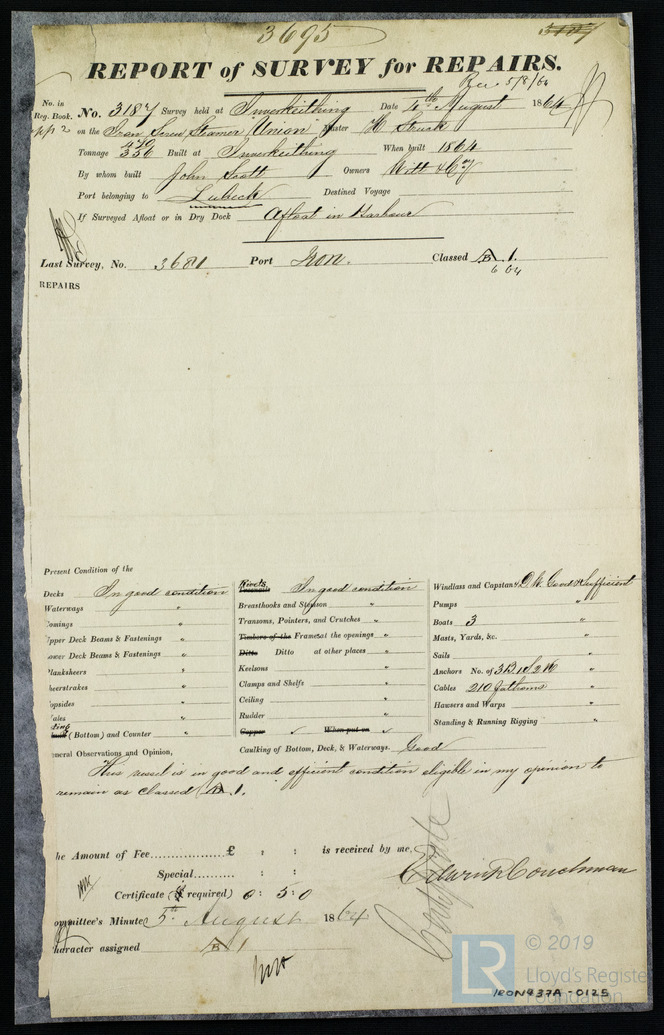 3695
3187
REPORT of SURVEY for REPAIRS.
Rec 5/8/64
No. in Reg. Book.
No. 3187 Survey held at Inverkeithing Date 4th August 1864
on the Iron Screw Steamer Union Master H Struck
470
Tonnage 336 Built at Inverkeithing When built 1864
By whom built John Scott Owners Witt & Co
Port belonging to Lubeck Destined Voyage
If Surveyed Afloat or in Dry Dock Afloat in Harbour
Last Survey, No. 3681 Port Lon. Classed A 1.
B
6 64
REPAIRS
Present Condition of the
Decks In good condition
Waterways "
Comings "
Upper Deck Beams & Fastenings "
Lower Deck Beams & Fastenings "
Planksheers "
Sheerstrakes "
Topsides "
Wales "
(Bottom) and Counter "
Rivets
Treenails In good condition
Breasthooks and Stemson "
Transoms, Pointers, and Crutches "
Timbers of the Frame at the openings "
Ditto Ditto at other places "
Keelsons "
Clamps and Shelfs "
Ceiling "
Rudder "
Copper ✓ When put on ✓
Caulking of Bottom, Deck, & Waterways. Good
Windlass and Capstan & D.W. Good & sufficient
Pumps "
Boats 3 "
Masts, Yards, &c. "
Sails "
Anchors No. of 3B 1S 2K "
Cables 210 fathoms "
Hawsers and Warps "
Standing & Running Rigging "
General Observations and Opinion,
This vessel is in good and efficient condition eligible in my opinion to
remain as classed A 1.
B
The Amount of Fee............£ : : is received by me,
Special.......... : :
Certificate (if required) 0 : 5 : 0
Edwin P Couchman
Committee's Minute 5th August 1864
Character assigned A 1
B
© 2019
LR
Lloyd's Register
Foundation
IRON437A-0125